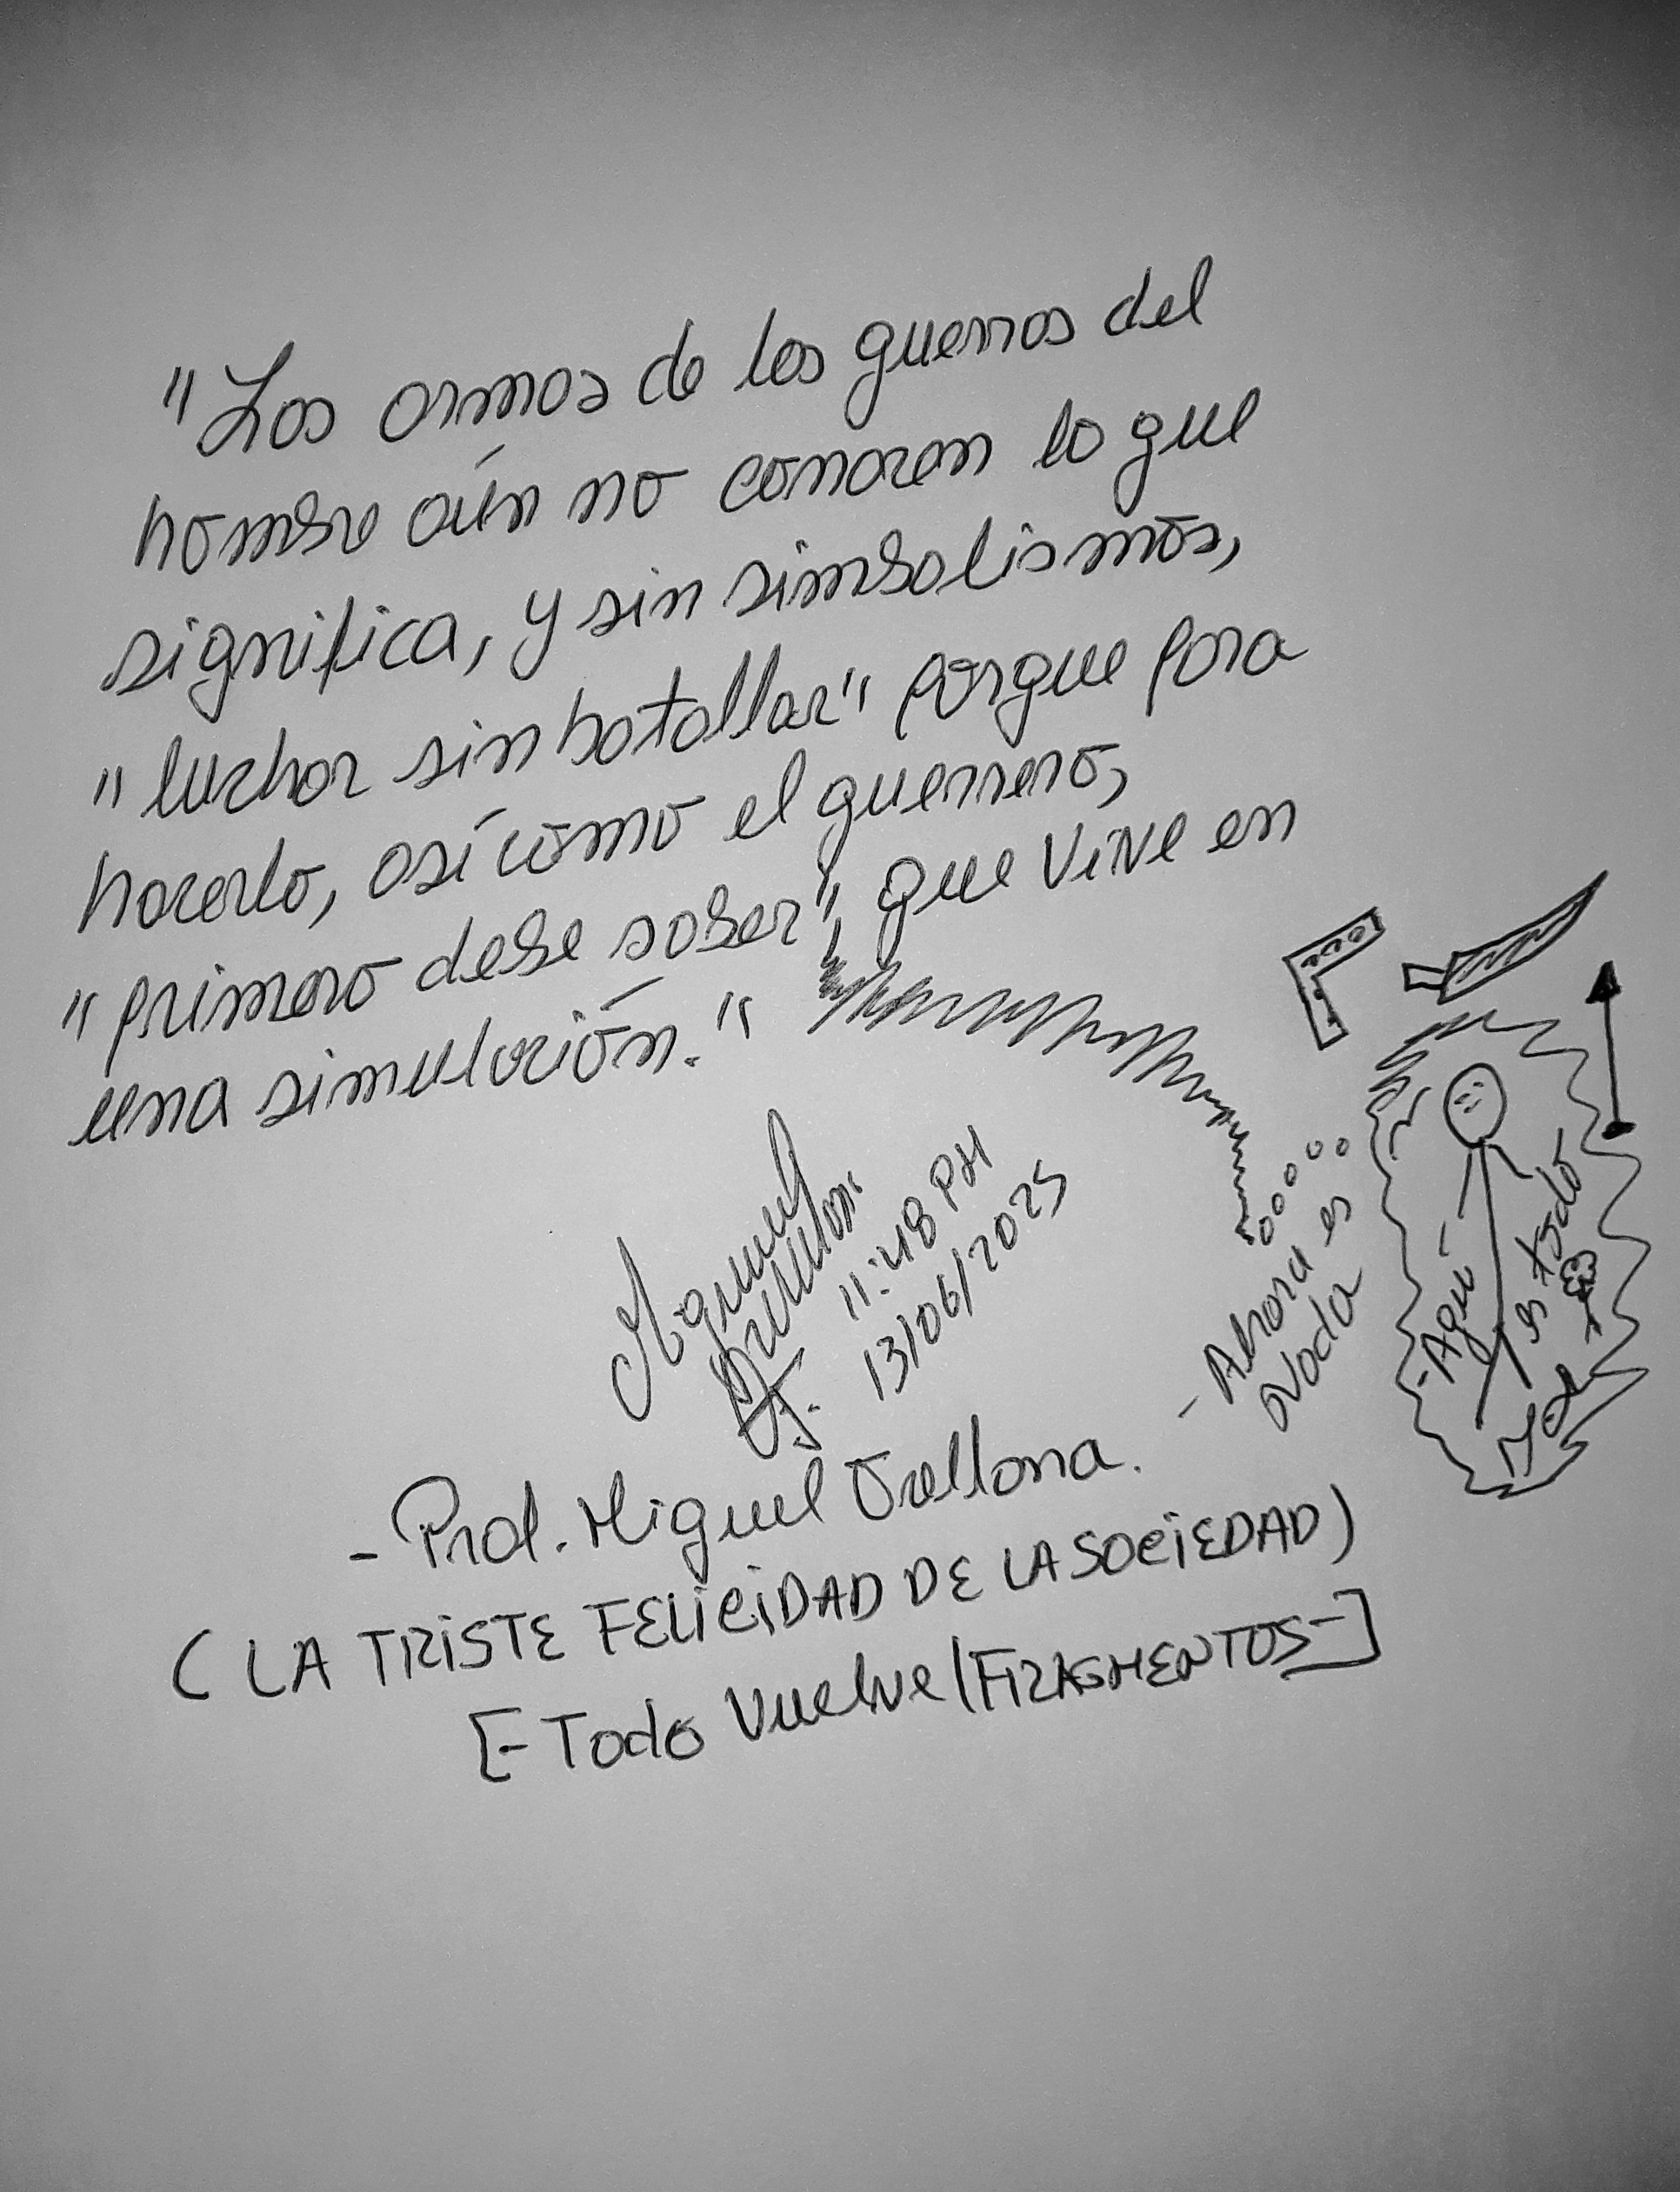 "Las armas de las guerras del
hombre aún no conocen lo que
significa, y sin simbolismos,
"luchar sin batallar" porque para
hacerlo, así como el guerrero,
"primero debe saber", que vive en
una simulación."
Miguel
Orellana
11:48 PM
13/06/2025
- Ahora es
Nada
- Aquí
es todo
- Prof. Miguel Orellana.
(LA TRISTE FELICIDAD DE LA SOCIEDAD)
[-Todo Vuelve/FRAGMENTOS-]